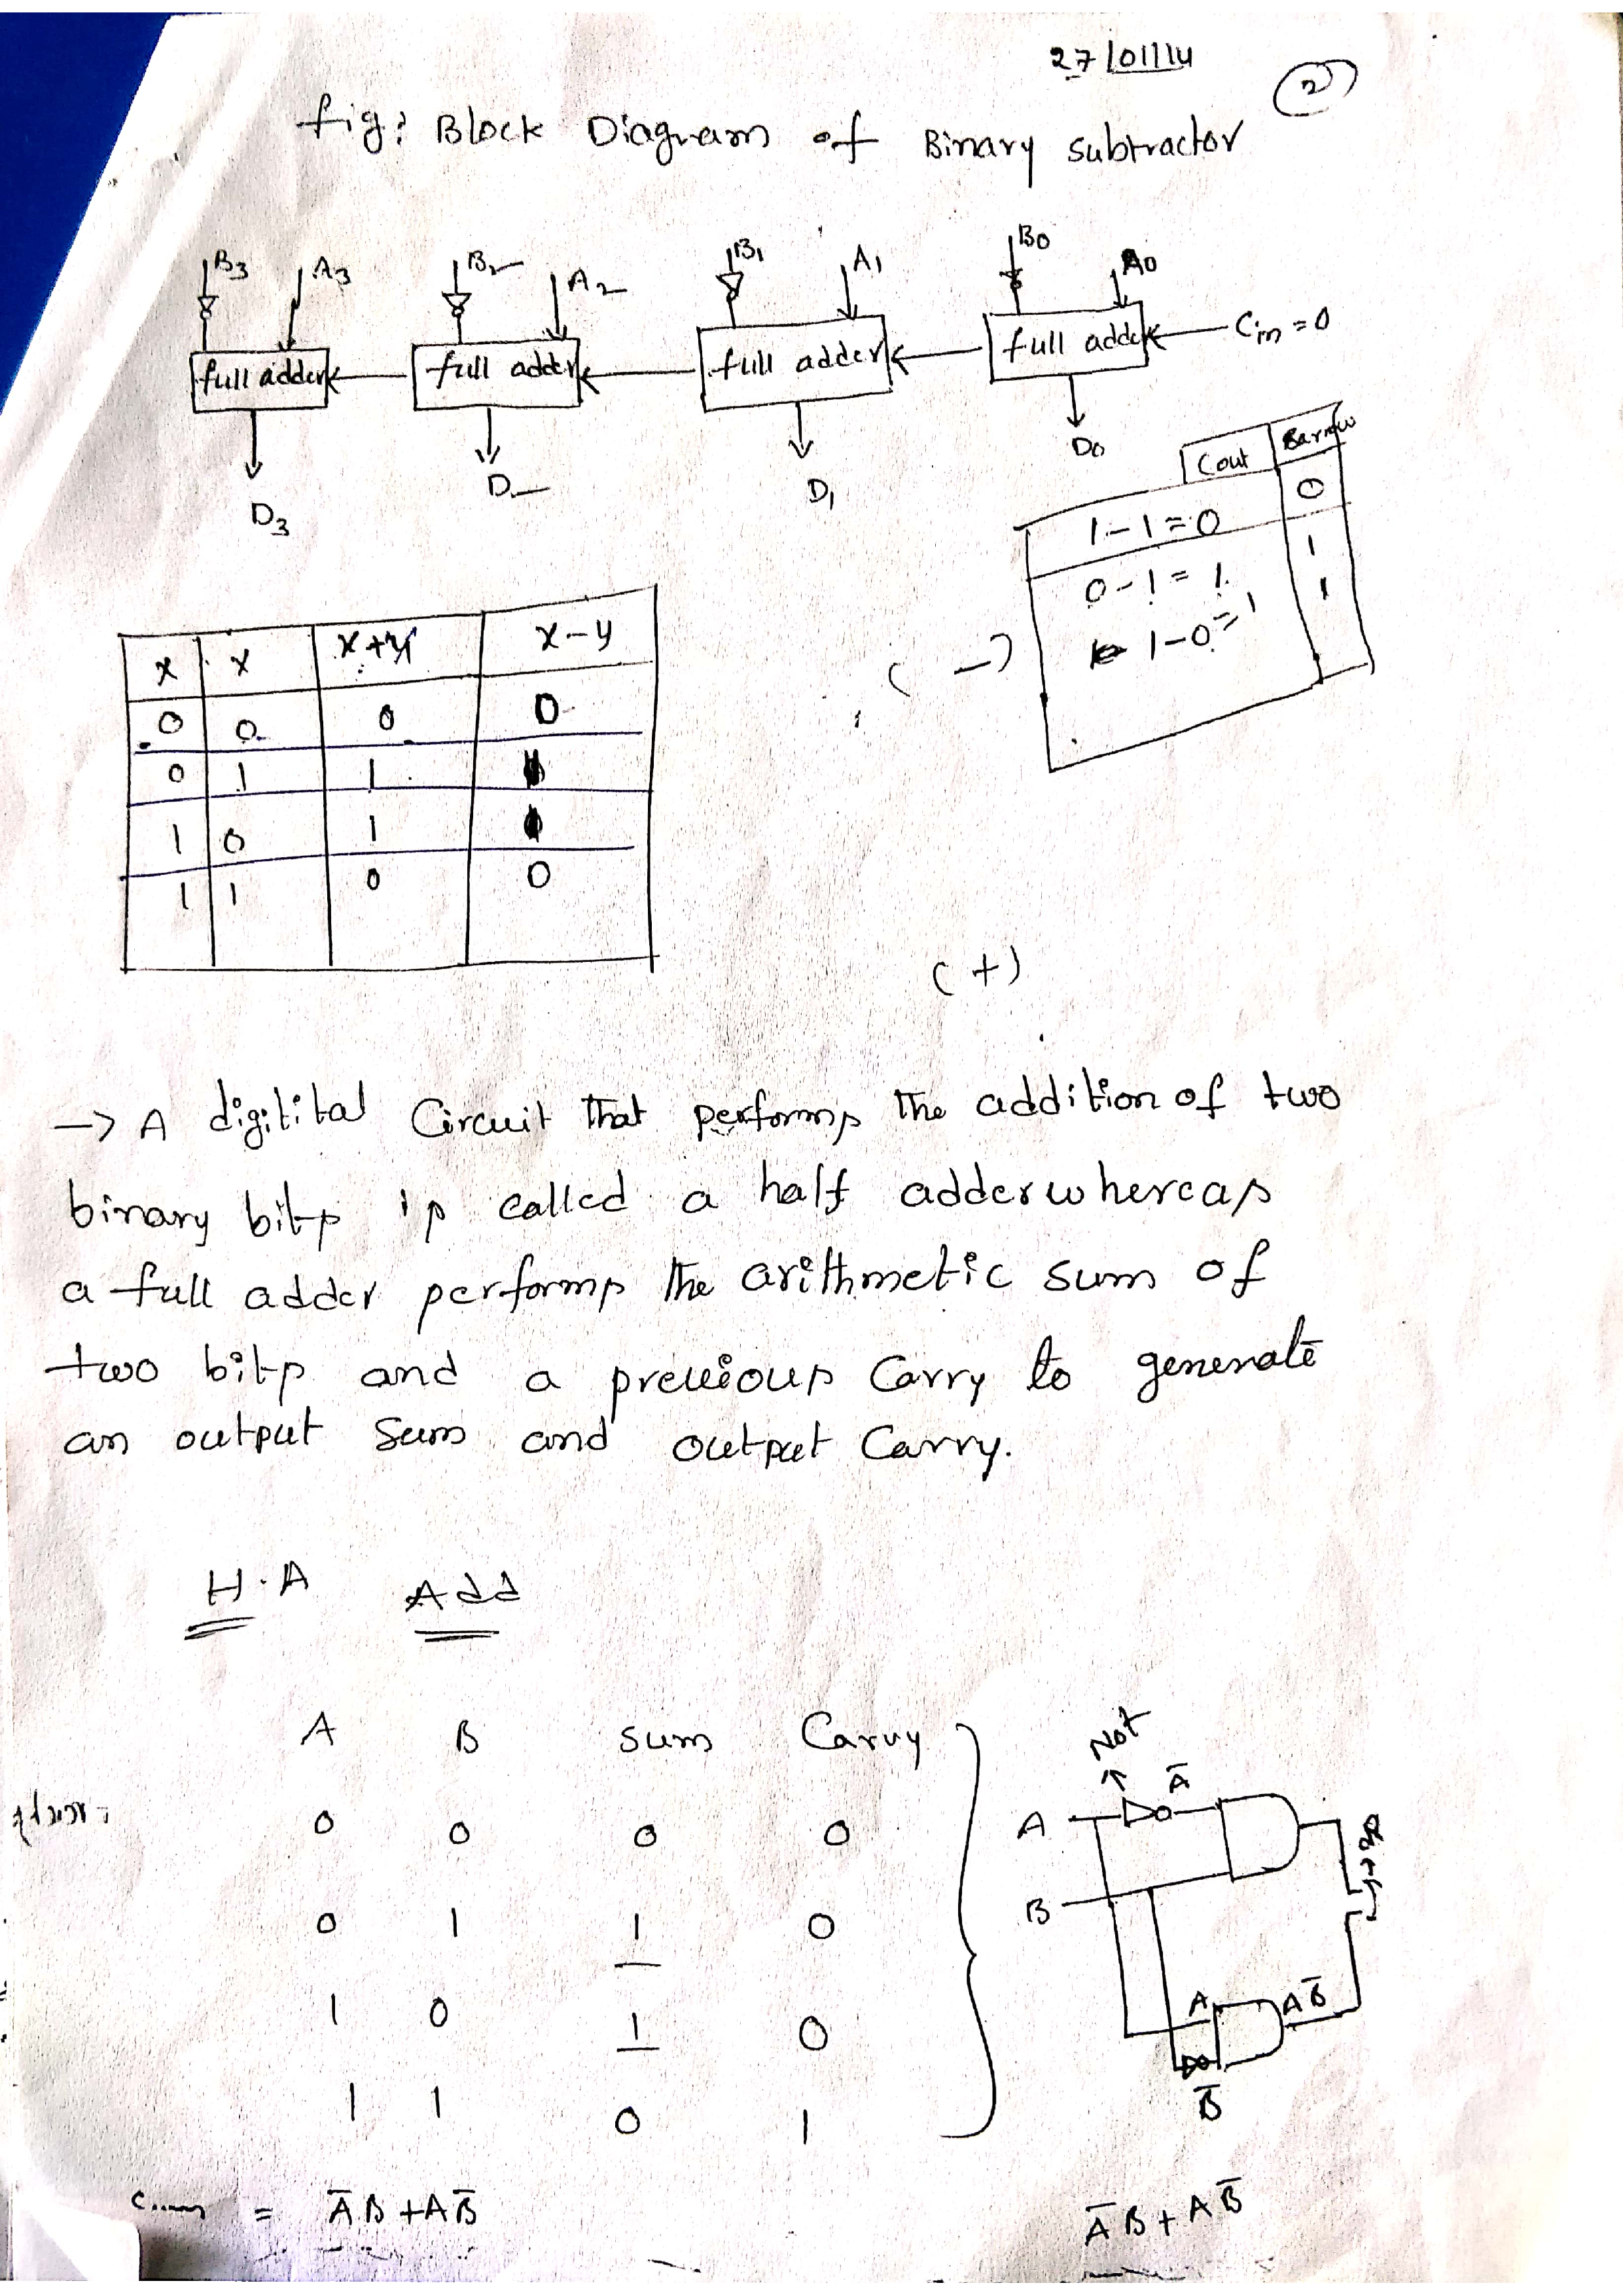 27/01/14
2
fig: Block Diagram of Binary subtractor
B3 A3 B2 A2 B1 A1 B0 A0
full adder full adder full adder full adder Cin = 0
D3 D2 D1 D0
Cout Barrow
1-1=0 0
0-1=1 1
1-0=1 1
(-)
x x x+y x-y
0 0 0 0
0 1 1
1 0 1
1 1 0 0
(+)
→ A digitital Circuit that performs the addition of two
binary bits is called a half adder whereas
a full adder performs the arithmetic sum of
two bits and a previous Carry to generate
an output Sum and output Carry.
H.A Add
A B sum Carry
0 0 0 0
0 1 1 0
1 0 1 0
1 1 0 1
Not
A Ā
B
A AB̄
B̄
= ĀB + AB̄
ĀB + AB̄